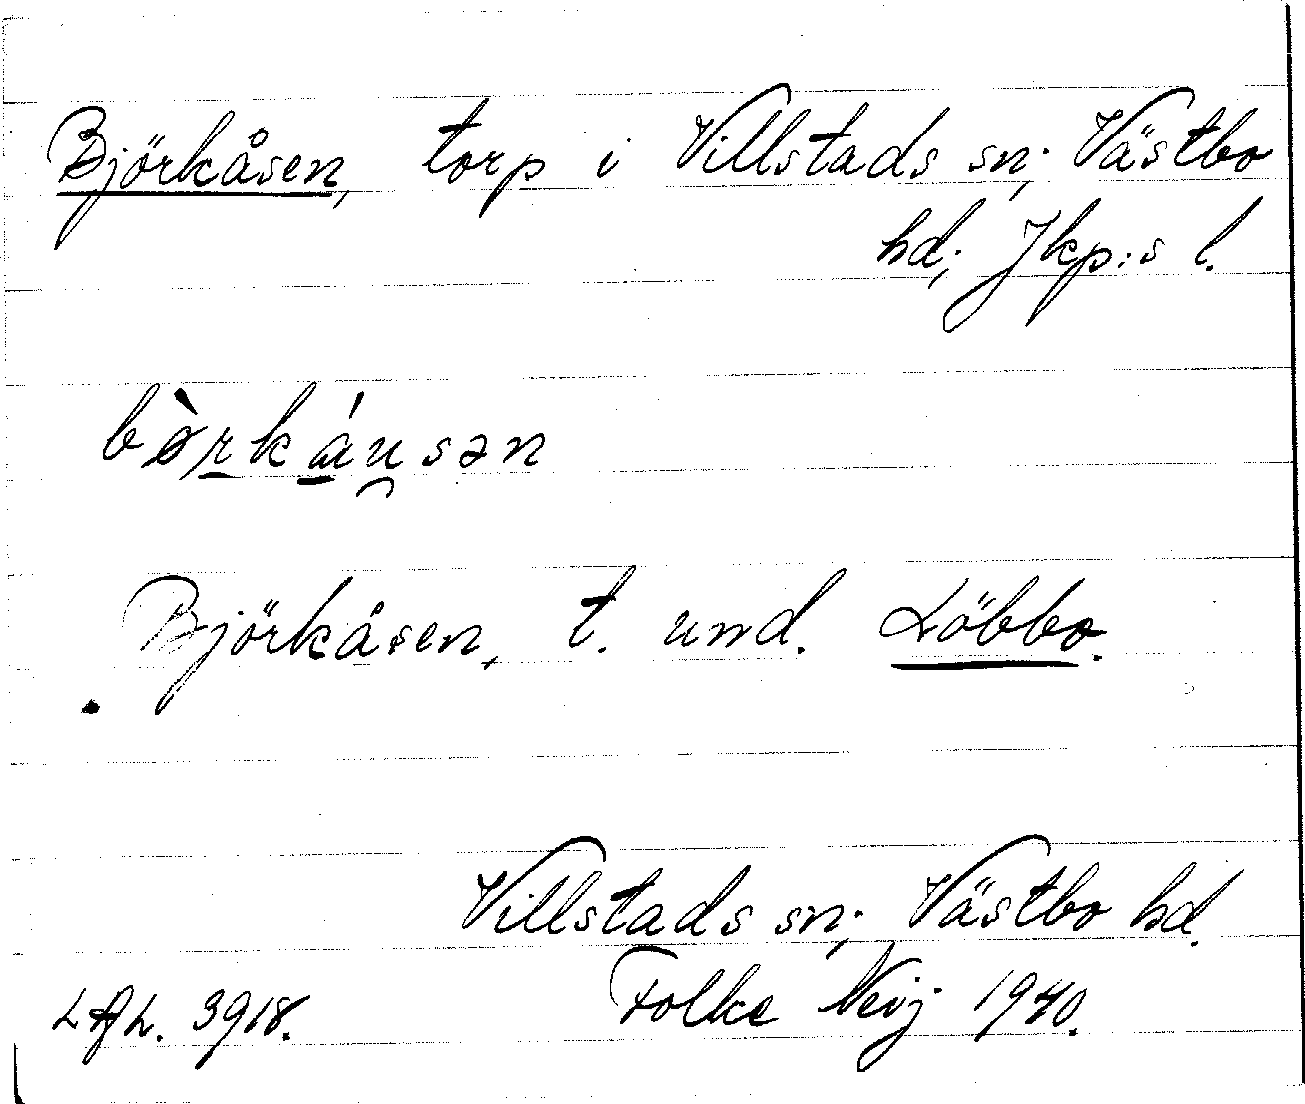 Björkåsen, torp i Villstads sn; Västbo
hd; Jkp:s l.
bə̀rkáu̯sən
Björkåsen, t. und. Löbbo.
Villstads sn; Västbo hd.
Folke Neij 1940.
LAL. 3918.